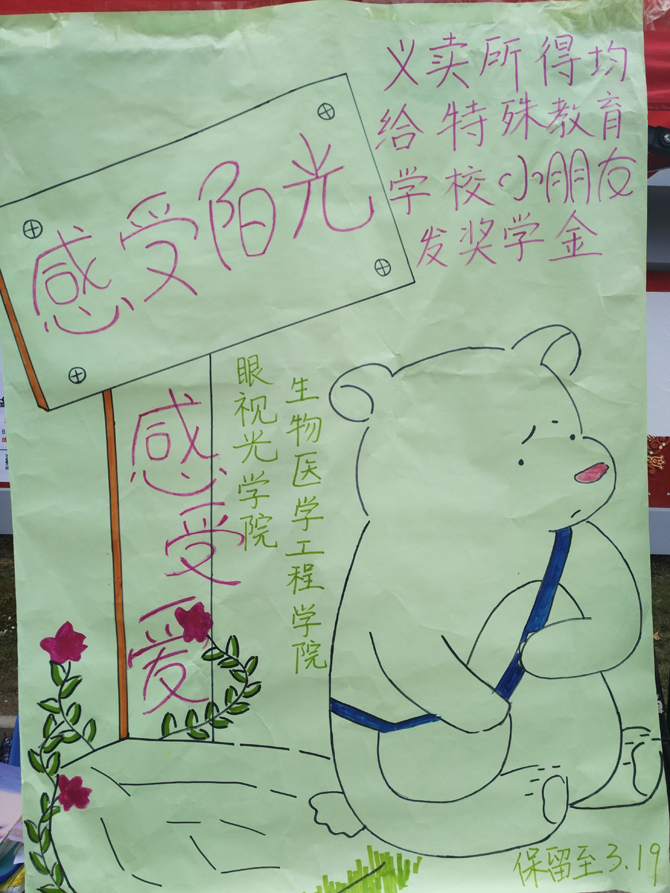 义卖所得均
给特殊教育
学校小朋友
发奖学金
感受阳光
感受爱
眼视光学院
生物医学工程学院
保留至3.19